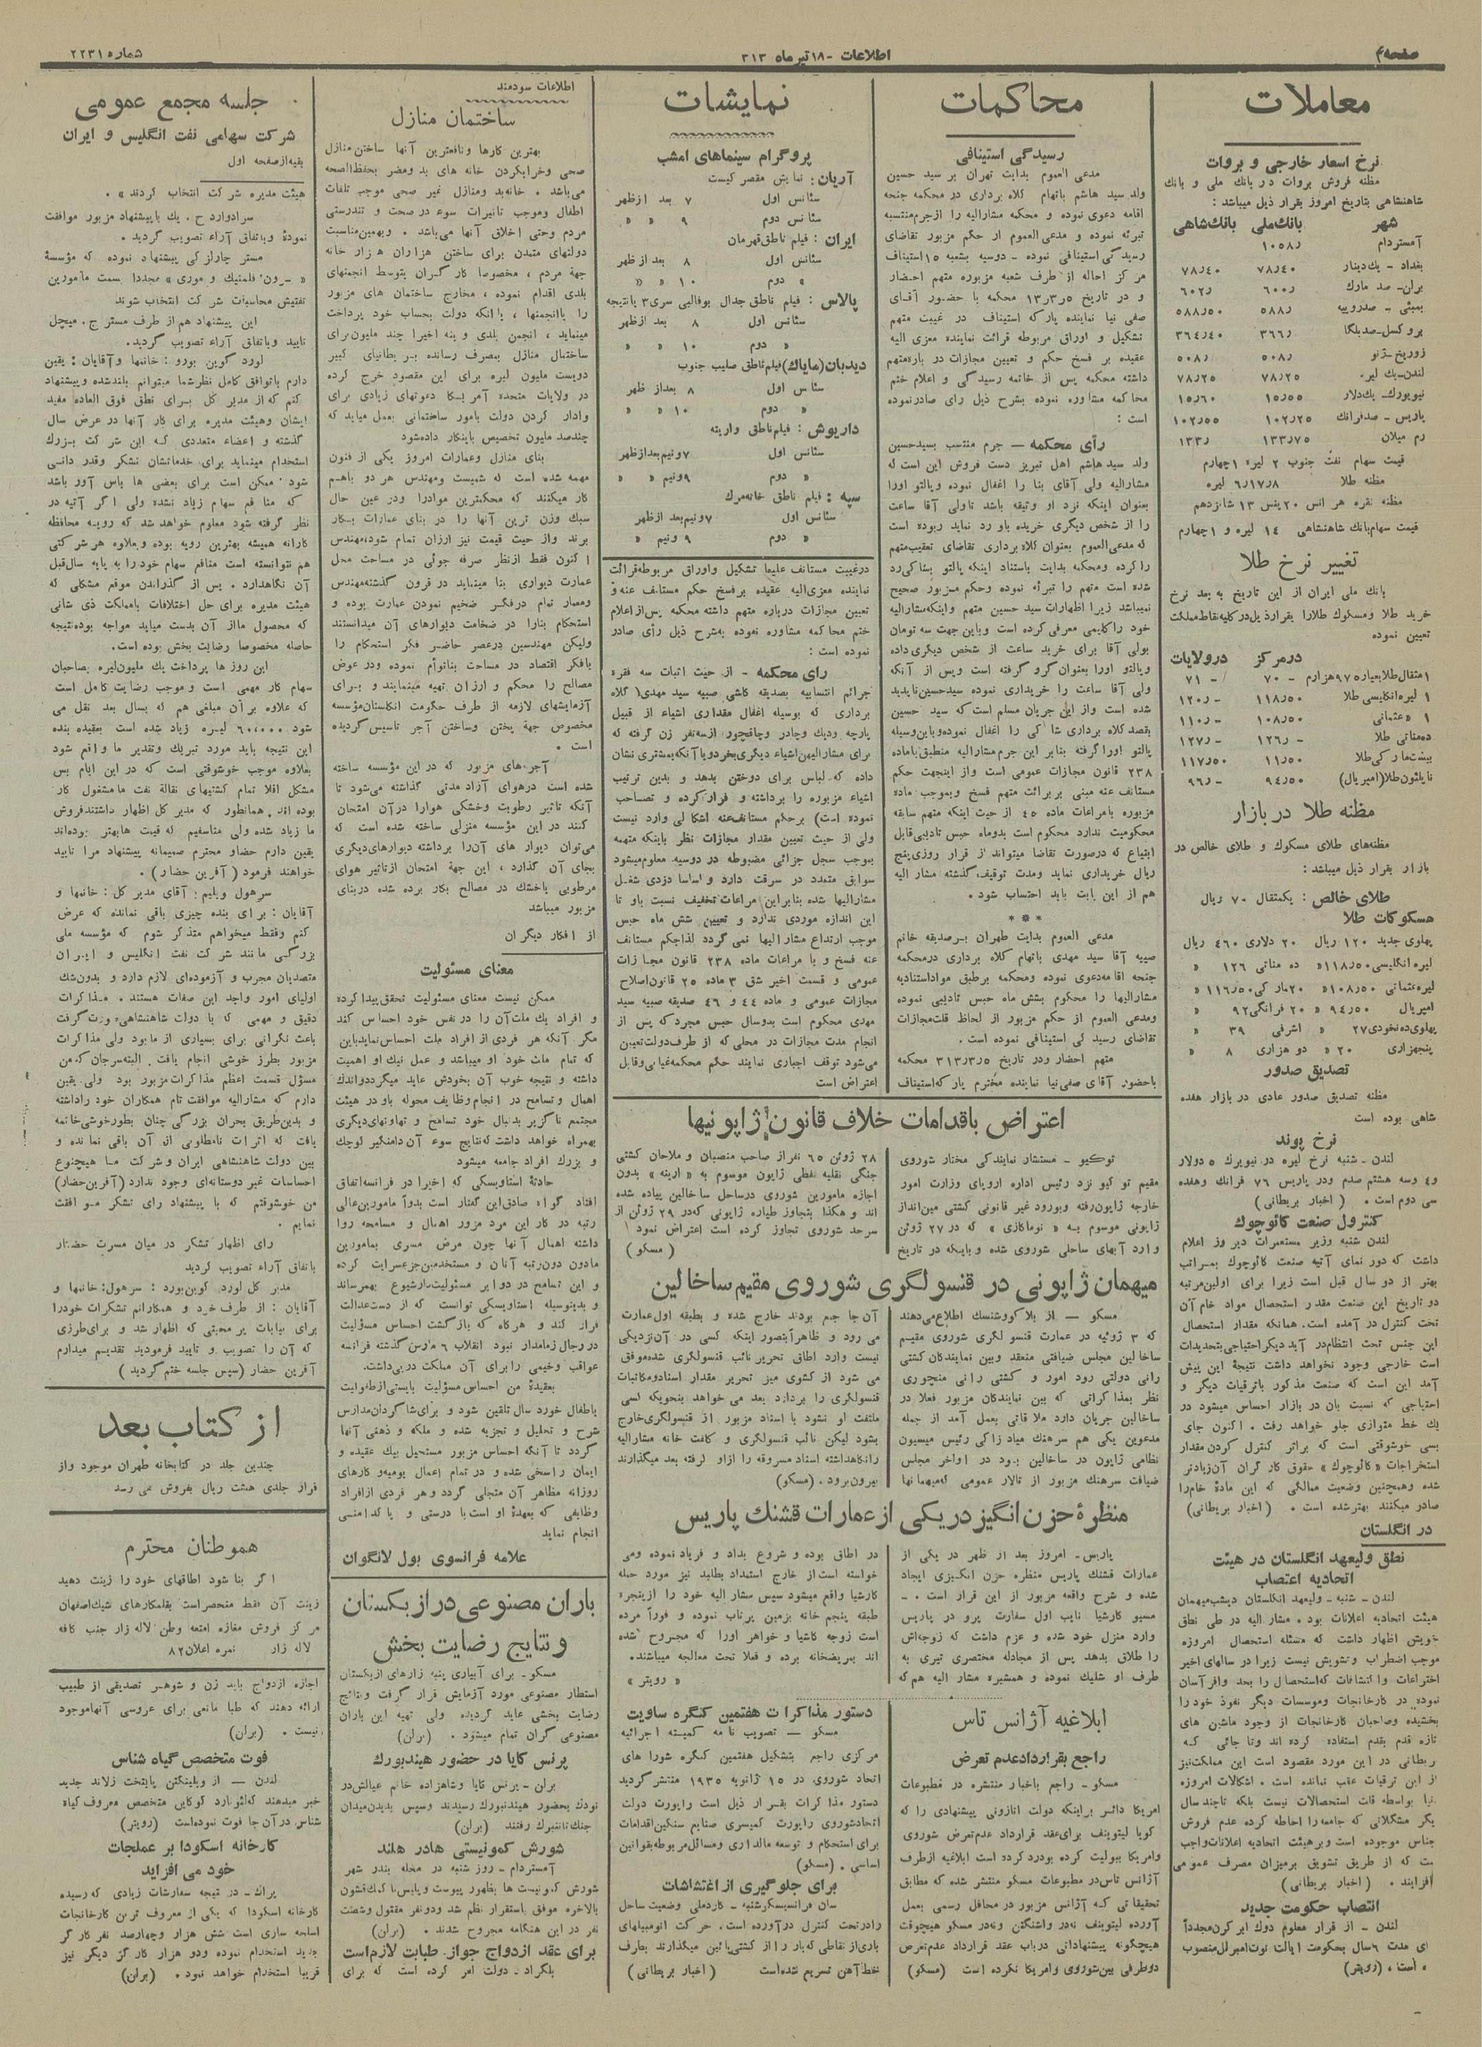 صفحه ۴
اطلاعات - ۱۸ تیر ماه ۳۱۳
شماره ۲۲۳۱
معاملات
نرخ اسعار خارجی و بروات
مظنه فروش بروات در بانك ملی و بانك
شاهنشاهی بتاریخ امروز بقرار ذیل میباشد :
شهر بانك‌ملی بانك‌شاهی
آمستردام ۱۰۵۸ر
بغداد - یك‌دینار ۷۸ر۴۰ ۷۸ر۴۰
برلن - صد مارك ۶۰۰ر ۶۰۲ر
بمبئی - صدروپیه ۵۸۸ر ۵۸۸ر۵۰
بروکسل - صدبلگا ۳۶۶ر ۳۶۴ر۴۰
زوریخ - ژنو ۵۰۸ر ۵۰۸ر
لندن - یك لیره ۷۸ر۲۵ ۷۸ر۲۵
نیویورك - یك‌دلار ۱۵ر۵۵ ۱۵ر۶۰
پاریس - صدفرانك ۱۰۲ر۲۵ ۱۰۲ر۵۵
رم میلان ۱۳۳ر۷۵ ۱۳۳ر
قیمت سهام نفت جنوب ۲ لیره ۱ چهارم
مظنه طلا ۶ر۱۷ر۸ لیره
مظنه نقره هر انس ۲۰ پنس ۱۳ شانزدهم
قیمت سهام بانك شاهنشاهی ۱۴ لیره و ۱ چهارم
تغییر نرخ طلا
بانك ملی ایران از این تاریخ به بعد نرخ
خرید طلا ومسکوك طلارا بقرارذیل در کلیه نقاط مملکت
تعیین نموده
درمرکز درولایات
۱ مثقال طلا بعیار ۹۷۵ هزارم ۷۰- ۷۱-
۱ لیره انگلیسی طلا ۱۱۸ر۵۰ ۱۲۰ر-
۱ « عثمانی ۱۰۸ر۵۰ ۱۱۰ر-
ده‌مناتی طلا ۱۲۶ر- ۱۲۷ر-
بیست‌مارکی‌طلا ۱۱ر۵۰ ۱۱۷ر۵۰
ناپلئون طلا (امپریال) ۹۴ر۵۰ ۹۶ر-
مظنه طلا در بازار
مظنه‌های طلای مسکوك و طلای خالص در
بازار بقرار ذیل میباشد :
طلای خالص : یکمثقال ۷۰ ریال
مسکوکات طلا
پهلوی جدید ۱۲۰ ریال ۲۰ دلاری ۴۶۰ ریال
لیره انگلیسی ۱۱۸ر۵۰ « ده مناتی ۱۲۶ «
لیره عثمانی ۱۰۸ر۵۰ « ۲۰ مارکی ۱۱۶ر۵۰ «
امپریال ۹۴ر۵۰ « ۲۰ فرانکی ۹۲ «
پهلوی ده‌نخودی ۲۷ « اشرفی ۳۹ «
پنجهزاری ۲۰ « دو هزاری ۸ «
تصدیق صدور
مظنه تصدیق صدور عادی در بازار هفده
شاهی بوده است
نرخ پوند
لندن - شنبه نرخ لیره در نیویرك ۵ دولار
و ۴ وسه هشتم صدم ودر پاریس ۷۶ فرانك وهفده
سی دوم است . ( اخبار بریطانی )
کنترول صنعت کائوچوك
لندن شنبه وزیر مستعمرات دیروز اعلام
داشت که دور نمای آتیه صنعت کائوچوك بمراتب
بهتر از دو سال قبل است زیرا برای اولین مرتبه
دو تاریخ این صنعت مقدار استحصال مواد خام آن
تحت کنترل در آمده است. همانکه مقدار استحصال
این جنس تحت انتظام در آید دیگر احتیاجی بتحدیدات
است خارجی وجود نخواهد داشت نتیجهٔ این پیش
آمد این است که صنعت مذکور باترقیات دیگر و
احتیاجی که نسبت بان در بازار احساس میشود در
یك خط متوازی جلو خواهد رفت . اکنون جای
بسی خوشوقتی است که براثر کنترل کردن مقدار
استخراجات « کائوچوك » حقوق کارگران آن زیادتر
شده وهمچنین وضعیت ممالکی که این مادهٔ خام را
صادر میکنند بهتر شده است . ( اخبار بریطانی )
در انگلستان
نطق ولیعهد انگلستان در هیئت
اتحادیه اعتصاب
لندن - شنبه - ولیعهد انگلستان دیشب میهمان
هیئت اتحادیه اعلانات بود . مشار الیه در طی نطق
خویش اظهار داشت که مسئله استحصال امروزه
موجب اضطراب و تشویش نیست زیرا در سالهای اخیر
اختراعات وا نکشافات که استحصال را بحد وافر آسان
نموده در کارخانجات وموسسات دیگر نفوذ خود را
بخشیده وصاحبان کارخانجات از وجود ماشین های
تازه قدم بقدم استفاده کرده اند وتا جائی که
ربطانی در این مورد مقصود است این مملکت نیز
از این ترقیات عقب نمانده است . اشکالات امروزه
نیا بواسطه قلت استحصالات نیست بلکه تاچند سال
یگر مشکلاتی که جامعه را احاطه کرده عدم فروش
جناس موجوده است و برهیئت اتحادیه اعلانات واجب
ست که از طریق تشویق برمیزان مصرف عمومی
افزایند . ( اخبار بریطانی )
انتصاب حکومت جدید
لندن - از قرار معلوم دوك ابرکرن مجدداً
ای مدت ۶ سال بحکومت ایالت نوت امبرلن منصوب
ه است . (رویتر)
محاکمات
رسیدگی استینافی
مدعی العموم بدایت تهران بر سید حسین
ولد سید هاشم باتهام کلاه برداری در محکمه جنحه
اقامه دعوی نموده و محکمه مشارالیه را ازجرم منتسبه
تبرئه نموده و مدعی العموم از حکم مزبور تقاضای
رسیدگی استینافی نموده - دوسیه بشعبه ۱۵ استیناف
مرکز احاله از طرف شعبه مزبوره متهم احضار
و در تاریخ ۱۳ر۳ر۵ محکمه با حضور آقای
صفی نیا نماینده پارکه استیناف در غیبت متهم
تشکیل و اوراق مربوطه قرائت نماینده معزی الیه
عقیده بر فسخ حکم و تعیین مجازات در باره متهم
داشته محکمه پس از خاتمه رسیدگی و اعلام ختم
محاکمه مشاوره نموده بشرح ذیل رای صادرنموده
است :
رای محکمه — جرم منتسب بسیدحسین
ولد سیدهاشم اهل تبریز دست فروش این است که
مشارالیه ولی آقای بنا را اغفال نموده وپالتو اورا
بعنوان اینکه نزد او وثیقه باشد تاولی آقا ساعت
را از شخص دیگری خریده باو رد نماید ربوده است
که مدعی‌العموم بعنوان کلاه برداری تقاضای تعقیب متهم
را کرده ومحکمه بدایت باستناد اینکه پالتو بشاکی رد
شده است متهم را تبرئه نموده وحکم مزبور صحیح
نمیباشد زیرا اظهارات سید حسین متهم واینکه مشارالیه
خود را کلیمی معرفی کرده است وباین جهت سه تومان
بولی آقا برای خرید ساعت از شخص دیگری داده
وپالتو اورا بعنوان گرو گرفته است وپس از آنکه
ولی آقا ساعت را خریداری نموده سیدحسین ناپدید
شده است واز این جریان مسلم است که سید حسین
بقصد کلاه برداری شاکی را اغفال نموده وباین وسیله
پالتو اورا گرفته بنابر این جرم مشارالیه منطبق باماده
۲۳۸ قانون مجازات عمومی است واز اینجهت حکم
مستانف عنه مبنی بربرائت متهم فسخ وبموجب ماده
مزبوره بامراعات ماده ۴۵ از حیث اینکه متهم سابقه
محکومیت ندارد محکوم است بدوماه حبس تادیبی قابل
ابتیاع که درصورت تقاضا میتواند از قرار روزی پنج
ریال خریداری نماید ومدت توقیف گذشته مشار الیه
هم از این بابت باید احتساب شود .
* * *
مدعی العموم بدایت طهران برصدیقه خانم
صبیه آقا سید مهدی باتهام کلاه برداری درمحکمه
جنحه اقامه دعوی نموده ومحکمه برطبق مواد استنادیه
مشارالیها را محکوم بشش ماه حبس تادیبی نموده
ومدعی العموم از حکم مزبور از لحاظ قلت مجازات
تقاضای رسیدگی استینافی نموده است .
متهم احضار ودر تاریخ ۳۱۳ر۳ر۵ محکمه
باحضور آقای صفی نیا نماینده محترم پارکه استیناف
نمایشات
پروگرام سینماهای امشب
آریان : نمایش مقصر کیست
سئانس اول ۷ بعد ازظهر
سئانس دوم ۹ « «
ایران : فیلم ناطق قهرمان
سئانس اول ۸ بعد از ظهر
« دوم ۱۰ « «
پالاس : فیلم ناطق جدال بوفالبی سری ۳ یا نتیجه
سئانس اول ۸ بعد ازظهر
« دوم ۱۰ « «
دیدبان (مایاك) فیلم ناطق صلیب جنوب
سئانس اول ۸ بعد از ظهر
« دوم ۱۰ « «
داریوش : فیلم ناطق واریته
سئانس اول ۷ ونیم بعد ازظهر
« دوم ۹ ونیم « «
سپه : فیلم ناطق خانه مرك
سئانس اول ۷ ونیم بعد ازظهر
« دوم ۹ ونیم «
درغیبت مستانف علیها تشکیل واوراق مربوطه قرائت
نماینده معزی الیه عقیده برفسخ حکم مستانف عنه و
تعیین مجازات درباره متهم داشته محکمه پس از اعلام
ختم محاکمه مشاوره نموده بشرح ذیل رأی صادر
نموده است :
رای محکمه - از حیث اثبات سه فقره
جرائم انتسابیه بصدیقه کاشی صبیه سید مهدی ( کلاه
برداری که بوسیله اغفال مقداری اشیاء از قبیل
پارچه ودیك وچادر وچاقچور از سه نفر زن گرفته که
برای مشارالیهن اشیاء دیگری بخرد ویا آنکه بمشتری نشان
داده که لباس برای دوختن بدهد و بدین ترتیب
اشیاء مزبوره را برداشته و فرار کرده و تصاحب
نموده است) برحکم مستانف عنه اشکالی وارد نیست
ولی از حیث تعیین مقدار مجازات نظر باینکه متهمه
بموجب سجل جزائی مضبوطه در دوسیه معلوم میشود
سوابق متعدد در سرقت دارد و اساسا دزدی شغل
مشارالیها شده بنابراین مراعات تخفیف نسبت باو تا
این اندازه موردی ندارد و تعیین شش ماه حبس
موجب ارتداع مشار الیها نمی گردد لذا حکم مستانف
عنه فسخ و با مراعات ماده ۲۳۸ قانون مجازات
عمومی و قسمت اخیر شق ۳ ماده ۲۵ قانون اصلاح
مجازات عمومی و ماده ۴۴ و ۴۶ صدیقه صبیه سید
مهدی محکوم است بدوسال حبس مجرد که پس از
انجام مدت مجازات در محلی که از طرف دولت معین
می‌شود توقف اجباری نمایند حکم محکمه غیابی وقابل
اعتراض است
اعتراض باقدامات خلاف قانون ژاپونیها
توکیو - مستشار نمایندگی مختار شوروی
مقیم توکیو نزد رئیس اداره اروپای وزارت امور
خارجه ژاپون رفته وبورود غیر قانونی کشتی مین انداز
ژاپونی موسوم به « نوماکازی » که در ۲۷ ژوئن
وارد آبهای ساحلی شوروی شده و باینکه در تاریخ
۲۸ ژوئن ۶۵ نفر از صاحب منصبان و ملاحان کشتی
جنگی نقلیه نفطی ژاپون موسوم به « ارینه » بدون
اجازه مامورین شوروی درساحل ساخالین پیاده شده
اند و هکذا بتجاوز طیاره ژاپونی که در ۲۹ ژوئن از
سرحد شوروی تجاوز کرده است اعتراض نمود
( مسکو )
میهمان ژاپونی در قنسولگری شوروی مقیم ساخالین
مسکو — از بلاکووشنسك اطلاع میدهند
که ۳ ژوئیه در عمارت قنسولگری شوروی مقیم
ساخالین مجلس ضیافتی منعقد وبین نمایندگان کشتی
رانی دولتی رود امور و کشتی رانی منچوری
نظر بمذاکراتی که بین نمایندگان مزبور فعلا در
ساخالین جریان دارد ملاقاتی بعمل آمد از جمله
مدعوین یکی هم سرهنك میاد زاکی رئیس میسیون
نظامی ژاپون در ساخالین بود در اواخر مجلس
ضیافت سرهنك مزبور از تالار عمومی که میهمانها
آن جا جمع بودند خارج شده و بطبقه اول عمارت
می رود و ظاهراً بتصور اینکه کسی در آن نزدیکی
نیست وارد اطاق تحریر نائب قنسولگری شده موفق
می شود از کشوی میز تحریر مقدار اسناد ومکاتبات
قنسولگری را بردارد بعد می خواهد بنحویکه اسی
ملتفت او نشود با اسناد مزبور از قنسولگری خارج
بشود لیکن نائب قنسولگری و کلفت خانه مشارالیه
را نگاهداشته اسناد مسروقه را از او گرفته بعد میگذارند
بیرون برود . (مسکو)
منظرهٔ حزن انگیز در یکی از عمارات قشنك پاریس
پاریس - امروز بعد از ظهر در یکی از
عمارات قشنك پاریس منظره حزن انگیزی ایجاد
شده و شرح واقعه مزبور از این قرار است . -
مسیو کارشیا نایب اول سفارت پرو در پاریس
وارد منزل خود شده و عزم داشت که زوجه‌اش
را طلاق بدهد پس از مجادله مختصری تیری به
طرف او شلیك نموده و همشیره مشار الیه هم که
در اطاق بوده و شروع بداد و فریاد نموده ومی
خواسته است از خارج استمداد بطلبد نیز مورد حمله
کارشیا واقع میشود سپس مشار الیه خود را از پنجره
طبقه پنجم خانه بزمین پرتاب نموده و فوراً مرده
است زوجه کاشیا و خواهر اورا که مجروح شده
اند بمریضخانه برده و فعلا تحت معالجه میباشند.
« رویتر »
ابلاغیه آژانس تاس
راجع بقرارداد عدم تعرض
مسکو - راجع باخبار منتشره در مطبوعات
امریکا دائر براینکه دولت اتازونی پیشنهادی را که
گویا لیتوینف برای عقد قرارداد عدم تعرض شوروی
وامریکا بیولیت کرده بود رد کرده است ابلاغیه ازطرف
آژانس تاس در مطبوعات مسکو منتشر شده که مطابق
تحقیقاتی که آژانس مزبور در محافل رسمی بعمل
آورده لیتوینف نه در واشنگتن ونه در مسکو هیچوقت
هیچگونه پیشنهاداتی درباب عقد قرارداد عدم تعرض
دوطرفی بین شوروی وامریکا نکرده است (مسکو)
دستور مذاکرات هفتمین کنگره ساویت
مسکو — تصویب نامه کمیته اجرائیه
مرکزی راجع بتشکیل هفتمین کنگره شورا های
اتحاد شوروی در ۱۵ ژانویه ۱۹۳۵ منتشر گردید
دستور مذاکرات بقرار ذیل است راپورت دولت
اتحاد شوروی راپورت کمیسری صنایع سنگین اقدامات
برای استحکام و توسعه مالداری ومسائل مربوطه بقوانین
اساسی . (مسکو)
برای جلوگیری از اغتشاشات
سان فرانسیسکو شنبه - گارد ملی وضعیت ساحل
را در تحت کنترل در آورده است . حرکت اتومبیلهای
باری از نقاطی که بار را از کشتی پائین میگذارند بطرف
خط آهن تسریع شده است ( اخبار بریطانی )
اطلاعات سودمند
ساختمان منازل
بهترین کارها ونافع‌ترین آنها ساختن منازل
صحی وخراب‌کردن خانه های بد ومضر بحفظ الصحه
می‌باشد . خانه بد ومنازل غیر صحی موجب تلفات
اطفال وموجب تاثیرات سوء در صحت و تندرستی
مردم وحتی اخلاق آنها می‌باشد . وبهمین مناسبت
دولتهای متمدن برای ساختن هزاران هزار خانه
جهة مردم ، مخصوصا کارگران بتوسط انجمنهای
بلدی اقدام نموده ، مخارج ساختمان های مزبور
را یا انجمنها ، یا آنکه دولت بحساب خود پرداخت
مینماید ، انجمن بلدی وینه اخیرا چند ملیون برای
ساختمان منازل بمصرف رسانده بریطانیای کبیر
دویست ملیون لیره برای این مقصود خرج کرده
در ولایات متحده آمریکا دعوتهای زیادی برای
وادار کردن دولت بامور ساختمانی بعمل میاید که
چندصد ملیون تخصیص باینکار داده شود
بنای منازل وعمارات امروز یکی از فنون
مهمه شده است که شمیست ومهندس هر دو باهم
کار میکنند که محکمترین موادرا ودر عین حال
سبك وزن ترین آنها را در بنای عمارات بکار
برند واز حیث قیمت نیز ارزان تمام شود ، مهندس
اکنون فقط از نظر صرفه جوئی در مساحت محل
عمارت دیواری بنا مینماید در قرون گذشته مهندس
ومعمار تمام درفکر ضخیم نمودن عمارت بوده و
استحکام بنارا در ضخامت دیوارهای آن میدانستند
ولیکن مهندسین درعصر حاضر فکر استحکام را
بافکر اقتصاد در مساحت بنا توام نموده ودرعوض
مصالح را محکم و ارزان تهیه مینمایند و برای
آزمایشهای لازمه از طرف حکومت انگلستان مؤسسه
مخصوص جهة پختن وساختن آجر تاسیس گردیده
است .
آجرهای مزبور که در این مؤسسه ساخته
شده است درهوای آزاد مدتی گذاشته می‌شود تا
آنکه تاثیر رطوبت وخشکی هوارا در آن امتحان
کنند در این مؤسسه منزلی ساخته شده است که
می‌توان دیوار های آن را برداشته دیوارهای دیگری
بجای آن گذارد ، این جهة امتحان از تاثیر هوای
مرطوبی باخشك در مصالح بکار برده شده دربنای
مزبور میباشد
از افکار دیگران
معنای مسئولیت
ممکن نیست معنای مسئولیت تحقق پیدا کرده
و افراد یك ملت آن را در نفس خود احساس کند
مگر آنکه هر فردی از افراد ملت احساس نماید باین
که تمام ملت خود او میباشد و عمل نیك او اهمیت
داشته و نتیجه خوب آن بخودش عاید میگردد واندك
اهمال و تسامح در انجام وظایف محوله باو در هیئت
مجتمع ناگزیر بدنبال خود تسامح و تهاونهای دیگری
بهمراه خواهد داشت که نتایج سوء آن دامنگیر کوچك
و بزرك افراد جامعه میشود
حادثهٔ استاویسکی که اخیرا در فرانسه اتفاق
افتاد گواه صادق این گفتار است بدواً مامورین عالی
رتبه در کار این مرد مزور اهمال و مسامحه روا
داشته اهمال آنها چون مرض مسری بمامورین
مادون دون‌رتبه آنان و مستخدمین جزء سرایت کرده
و این تسامح در دوایر مسئولیت دار شیوع بهمرساند
و بدینوسیله استاویسکی توانست که از دست عدالت
فرار کند و هرگاه که بازگشت احساس مسؤلیت
در رجال زمامدار نبود انقلاب ۶ مارس گذشته فرانسه
عواقب وخیمی را برای آن مملکت در بی‌داشت.
بعقیدهٔ من احساس مسؤلیت بایستی از طفولیت
باطفال خورد سال تلقین شود و برای شاگردان مدارس
شرح و تحلیل و تجزیه شده و ملکه و ذهنی آنها
گردد تا آنکه احساس مزبور مستحیل بیك عقیده و
ایمان راسخی شده و در تمام اعمال یومیه وکارهای
روزانه مظاهر آن متجلی گردد وهر فردی از افراد
وظایفی که بعهدهٔ او است با درستی و پاکدامنی
انجام نماید
علامه فرانسوی بول لانگوان
باران مصنوعی در از بکستان
و نتایج رضایت بخش
مسکو - برای آبیاری پنبه زارهای ازبکستان
استطار مصنوعی مورد آزمایش قرار گرفت ونتایج
رضایت بخشی عاید گردیده ولی تهیه این باران
مصنوعی گران تمام میشود . (برلن)
پرنس کایا در حضور هیندبورك
برلن - پرنس کایا وشاهزاده خانم عیالش در
نودك بحضور هیندنبورك رسیدند وسپس بدیدن میدان
جنك تاننبرك رفتند (برلن)
شورش کمونیستی ها در هلند
آمستردام - روز شنبه در محله بندر شهر
شورش کمونیست ها بظهور پیوست وپلیس با کمك قشون
بالاخره موفق باستقرار نظم شد ودونفر مقتول وشصت
نفر در این هنگامه مجروح شدند . (برلن)
برای عقد ازدواج جواز طبابت لازم است
بلگراد - دولت امر کرده است که برای
جلسه مجمع عمومی
شرکت سهامی نفت انگلیس و ایران
بقیه از صفحه اول
هیئت مدیره شرکت انتخاب کردند » .
سرادوارد ح . یك باپیشنهاد مزبور موافقت
نمودهٔ وباتفاق آراء تصویب گردید .
مستر چارلز کی پیشنهاد نموده که مؤسسهٔ
« - رون ' فلمنیك و موری » مجددا بسمت مامورین
تفتیش محاسبات شرکت انتخاب شوند
این پیشنهاد هم از طرف مستر ج. میچل
تایید وباتفاق آراء تصویب گردید.
لورد گوین بورو : خانمها وآقایان : یقین
دارم باتوافق کامل نظر شما میتوانم بلند شده وپیشنهاد
کنم که از مدیر کل برای نطق فوق العاده مفید
ایشان وهیئت مدیره برای کار آنها در عرض سال
گذشته و اعضاء متعددی که این شرکت بزرك
استخدام مینماید برای خدماتشان تشکر وقدر دانی
شود ' ممکن است برای بعضی ها یاس آور باشد
که منافع سهام زیاد نشده ولی اگر آتیه در
نظر گرفته شود معلوم خواهد شد که رویه محافظه
کارانه همیشه بهترین رویه بوده وبعلاوه هر شرکتی
هم نتوانسته است منافع سهام خود را به پایه سال قبل
آن نگاهدارد . پس از گذراندن موقع مشکلی که
هیئت مدیره برای حل اختلافات بامملکت ذی شانی
که محصول ما از آن بدست میاید مواجه بوده نتیجه
حاصله مخصوصا رضایت بخش بوده است.
این روز ها پرداخت یك ملیون لیره بصاحبان
سهام کار مهمی است و موجب رضایت کامل است
که علاوه بر آن مبلغی هم به بسال بعد نقل می
شود ۶۰،۰۰۰ لیره زیاد شده است بعقیده بنده
این نتیجه باید مورد تبریك وتقدیر ما واقع شود
بعلاوه موجب خوشوقتی است که در این ایام بس
مشکل اقلا تمام کشتیهای نقاله نفت ما مشغول کار
بوده اند . همانطور که مدیر کل اظهار داشتند فروش
ما زیاد شده ولی متاسفیم که قیمت ها بهتر نبوده‌اند
یقین دارم حضار محترم صمیمانه پیشنهاد مرا تایید
خواهند فرمود ( آفرین حضار ) .
سرهول ویلیم : آقای مدیر کل : خانمها و
آقایان : برای بنده چیزی باقی نمانده که عرض
کنم وفقط میخواهم متذکر شوم که مؤسسه ملی
بزرگی مانند شرکت نفت انگلیس و ایران
متصدیان مجرب و آزموده‌ای لازم دارد و بدون شك
اولیای امور واجد این صفات هستند . مذاکرات
دقیق و مهمی که با دولت شاهنشاهی صورت گرفت
باعث نگرانی برای بسیاری از ما بود ولی مذاکرات
مزبور بطرز خوشی انجام یافت . البته سرجان کدمن
مسؤل قسمت اعظم مذاکرات مزبور بود ولی یقین
دارم که مشارالیه موافقت تام همکاران خود را داشته
و بدین طریق بحران بزرگی چنان بطور خوشی خاتمه
یافت که اثرات نامطلوبی از آن باقی نمانده و
بین دولت شاهنشاهی ایران و شرکت ما هیچ نوع
احساسات غیر دوستانه‌ای وجود ندارد (آفرین حضار)
من خوشوقتم که با پیشنهاد رای تشکر موافقت
نمایم .
رای اظهار تشکر در میان مسرت حضار
باتفاق آراء تصویب گردید
مدیر کل لورد کوبن بورد : سرهول : خانمها و
آقایان : از طرف خود و همکارانم تشکرات خود را
برای بیانات پر محبتی که اظهار شد و برای طرزی
که آن را تصویب و تایید فرمودید تقدیم میدارم
آفرین حضار (سپس جلسه ختم گردید )
از کتاب بعد
چندین جلد در کتابخانه طهران موجود واز
قرار جلدی هشت ریال بفروش می رسد
هموطنان محترم
اگر بنا شود اطاقهای خود را زینت دهید
زینت آن فقط منحصر است بقلمکارهای شیك اصفهان
مرکز فروش مغازه امتعه وطن لاله زار جنب کافه
لاله زار نمره اعلان ۸۲
اجازه ازدواج باید زن و شوهر تصدیقی از طبیب
ارائه دهند که طبا مانعی برای عروسی آنها موجود
نیست . (برلن)
فوت متخصص گیاه شناس
لندن — از ویلینگتن پایتخت زلاند جدید
خبر میدهند که لئونارد کوکاین متخصص معروف گیاه
شناس در آن جا فوت نموده است (رویتر)
کارخانه اسکودا بر عملجات
خود می افزاید
پراك - در نتیجه سفارشات زیادی که رسیده
کارخانه اسکودا که یکی از معروف ترین کارخانجات
اسلحه سازی است شش هزار وچهارصد نفر کارگر
جدید استخدام نموده ودو هزار کارگر دیگر نیز
قریبا استخدام خواهد نمود . (برلن)